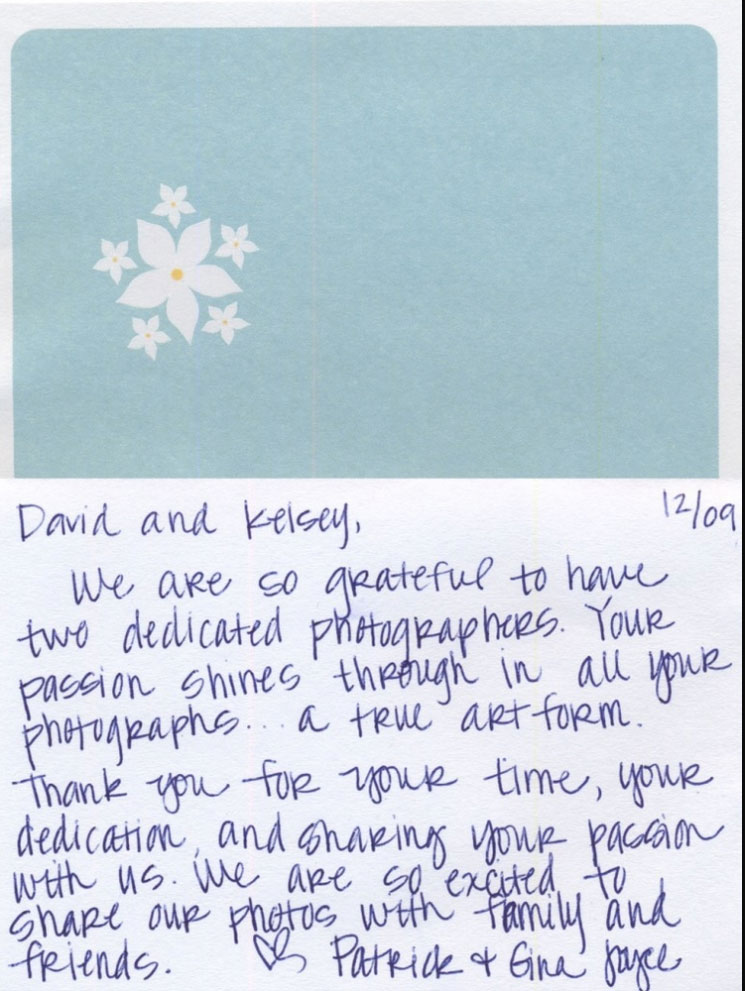 David and Kelsey,
12/09
We are so grateful to have
two dedicated photographers. Your
passion shines through in all your
photographs... a true art form.
Thank you for your time, your
dedication, and sharing your passion
with us. We are so excited to
share our photos with family and
friends. ♡ Patrick + Gina Joyce